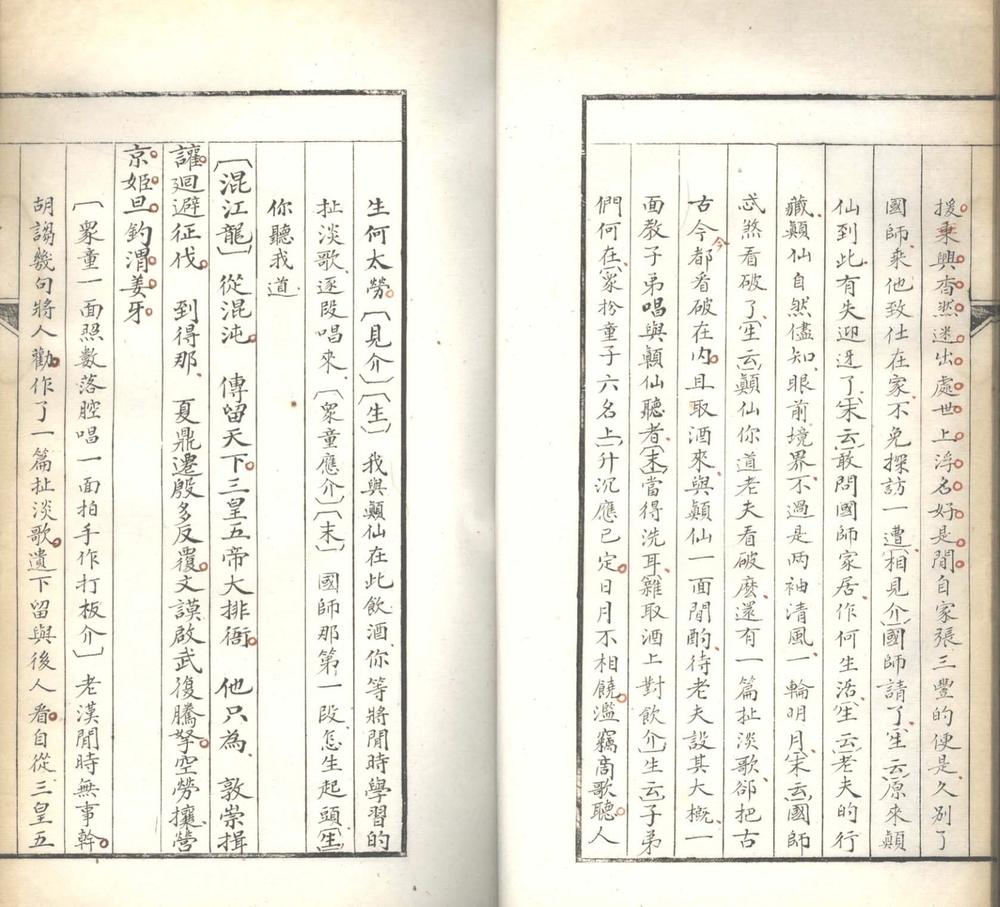 援乘興杳然迷出處世上浮名好是閒自家張三豐的便是久別了
國師乘他致仕在家不免探訪一遭〔相見介〕國師請了〔生云〕原來顛
仙到此有失迎迓了〔末云〕敢問國師家居作何生活〔生云〕老夫的行
藏顛仙自然儘知眼前境界不過是两袖清風一輪明月〔末云〕國師
忒煞看破了〔生云〕顛仙你道老夫看破麽還有一篇扯淡歌郤把古
古今今都看破在内且取酒來與顛仙一面閒酌待老夫設其大概一
面教子弟唱與顛仙聽者〔末〕當得洗耳〔雜取酒上對飲介〕生云〕子弟
們何在〔衆扮童子六名上〕升沉應已定日月不相饒濫竊商歌聽人
生何太勞〔見介〕〔生〕我與顛仙在此飲酒你等將閒時學習的
扯淡歌逐段唱來〔衆童應介〕〔末〕國師那第一段怎生起頭〔生〕
你聽我道
〔混江龍〕從混沌　傳留天下三皇五帝大排衙　他只為敦崇揖
讓廻避征伐　到得那　夏鼎遷殷多反覆文謨啟武復騰拏空勞攘營
京姬旦釣渭姜牙
〔衆童一面照數落腔唱一面拍手作打板介〕老漢閒時無事幹
胡謅幾句將人勸作了一篇扯淡歌遺下留與後人看自從三皇五